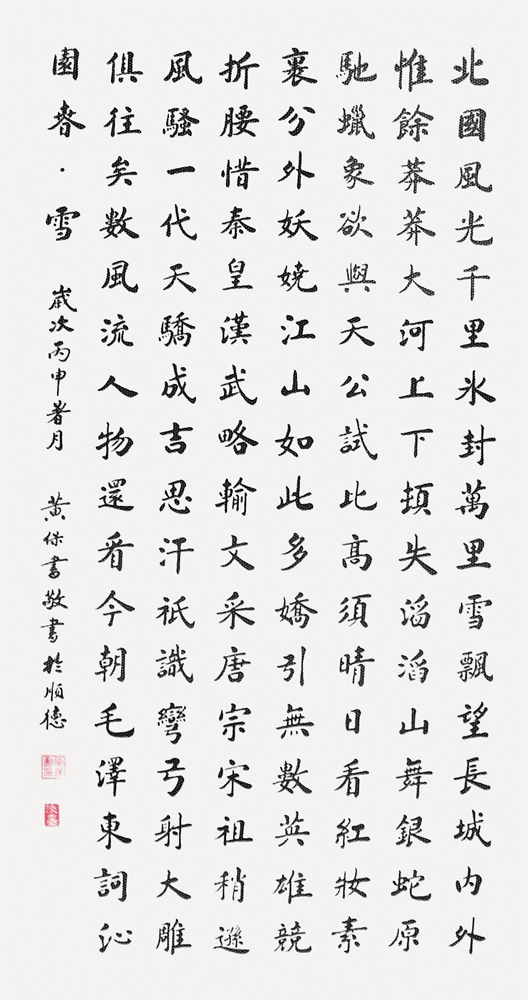 北國風光千里氷封萬里雪飄望長城内外
惟餘莽莽大河上下頓失滔滔山舞銀蛇原
馳蠟象欲與天公試比高須晴日看紅妝素
裹分外妖嬈江山如此多嬌引無數英雄競
折腰惜秦皇漢武略輸文采唐宗宋祖稍遜
風騷一代天驕成吉思汗祇識彎弓射大雕
俱往矣數風流人物還看今朝毛澤東詞沁
園春·雪 歲次丙申暑月 黄保書敬書於順德